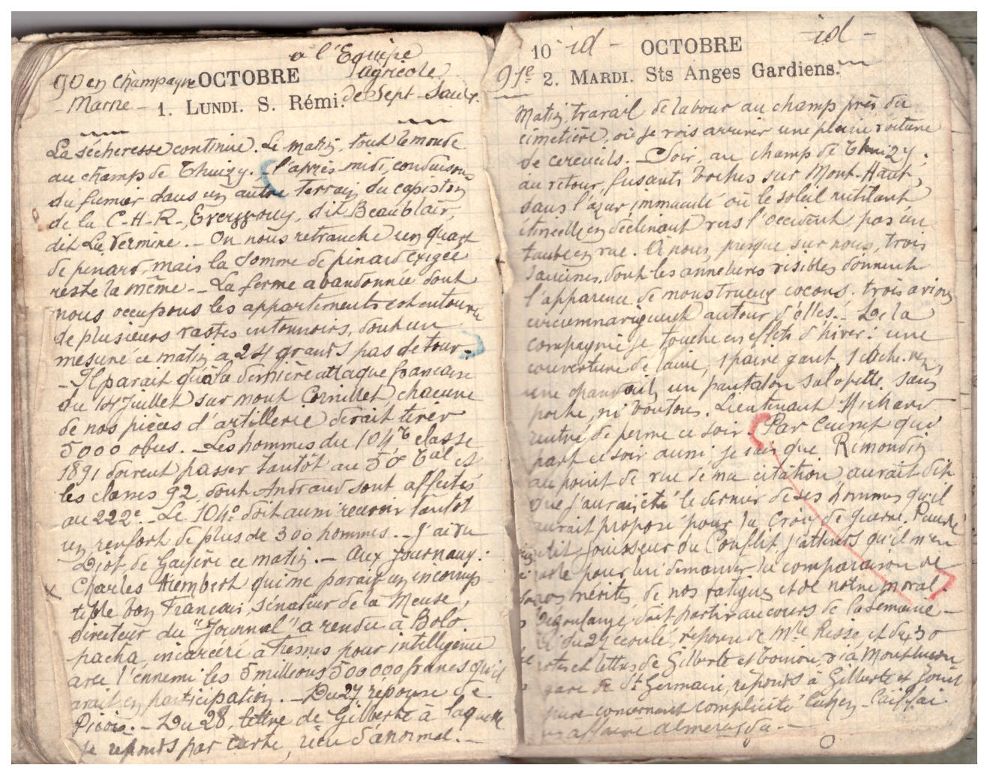 90 en Champagne
Marne -
OCTOBRE
à l'Equipe
agricole
de Sept-Saulx
1. LUNDI. S. Rémi.
La sécheresse continue. Le matin, tout le monde
au champ de Thuizy. (L'après midi, conduisons
du fumier dans un autre terrain du capiston
de la C.H.R,
dit Beaublair,
dit La Vermine. - On nous retranche un quart
de pinard, mais la somme de pinard exigée
reste la même. - La ferme abandonnée dont
nous occupons les appartements est entourée
de plusieurs vastes entonnoirs, dont un
mesuré ce matin a 24 grands pas de tour.)
- Il parait qu'à la dernière attaque française
du 14 Juillet sur mont Cornillet chacune
de nos pièces d'artillerie devait tirer
5000 obus. - Les hommes du 104e classe
1891 doivent passer tantôt au 50e Tal et
les classes 92, dont Andraud sont affectés
au 222e. - Le 104e doit aussi recevoir tantôt
un renfort de plus de 300 hommes. - J'ai vu
Diot de Gaïère ce matin. - Aux Journaux:
Charles Humbert qui me parait un incorrup
tible bon français, sénateur de la Meuse,
directeur du "Journal" a rendu à Bolo
pacha, incarcéré à Fresnes pour intelligence
avec l'ennemi les 5 millions 500000 francs qu'il
avait en participation. - Du 27 réponse de
- Du 28, lettre de Gilberte à laquelle
je réponds par carte, rien d'anormal. -
10 id - OCTOBRE id -
91e 2. MARDI. Sts Anges Gardiens.
Matin, travail de labour au champ près du
cimetière, où je vois arriver une pleine voiture
de cercueils. - Soir, au champ de Thuizy;
au retour, fusants boches sur Mont-Haut,
sans l'azur immaculé où le soleil rutilant
étincelle en déclinant vers l'occident pas un
taube en vue. A nous, presque sur nous, trois
saucisses, dont les annelures visibles donnent
l'apparence de monstrueux cocons, trois avions
circumnaviguent autour d'elles. - La
compagnie je touche en effets d'hiver: une
couverture de laine, 1 paire gant, 1 cache-nez,
un pantalon salopette, sans
poche, ni bouton. Lieutenant Michard
rentré de perme ce soir. (Par
part ce soir aussi je sais que Rimondin
au point de vue de ma citation aurait dit
que j'aurais été le dernier de ses hommes qu'il
aurait proposé pour la Croix de guerre.
petit jouisseur du Conflit j'attends qu'il m'en
parle pour lui demander la comparaison de
nos mérites de nos fatigues et de notre moral.)
doit partir au cours de la semaine -
du 27 écoulé, réponse de Mlle Risse et du 30
et lettres de Gilberte et via Montluçon
gare de St Germain, réponds à Gilberte et
concernant complicité
affaire Almereyda. -